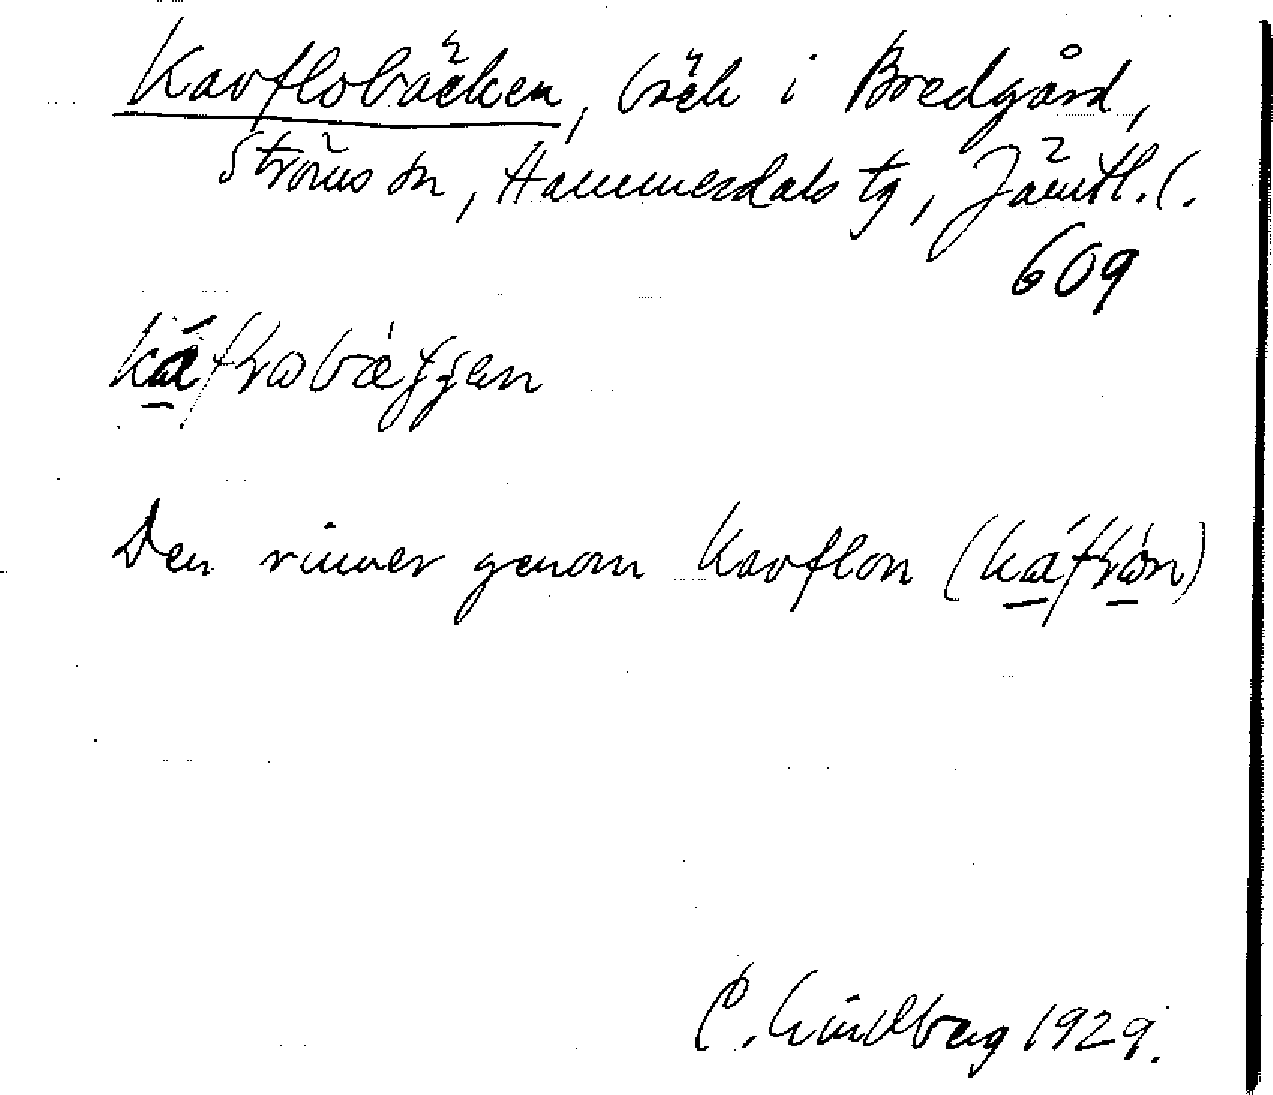 Kavflobäcken, bäck i Bredgård,
Ströms sn, Hammerdals tg, Jämtl. l.
609
Den rinner genom Kavflon
C. Lindberg 1929.